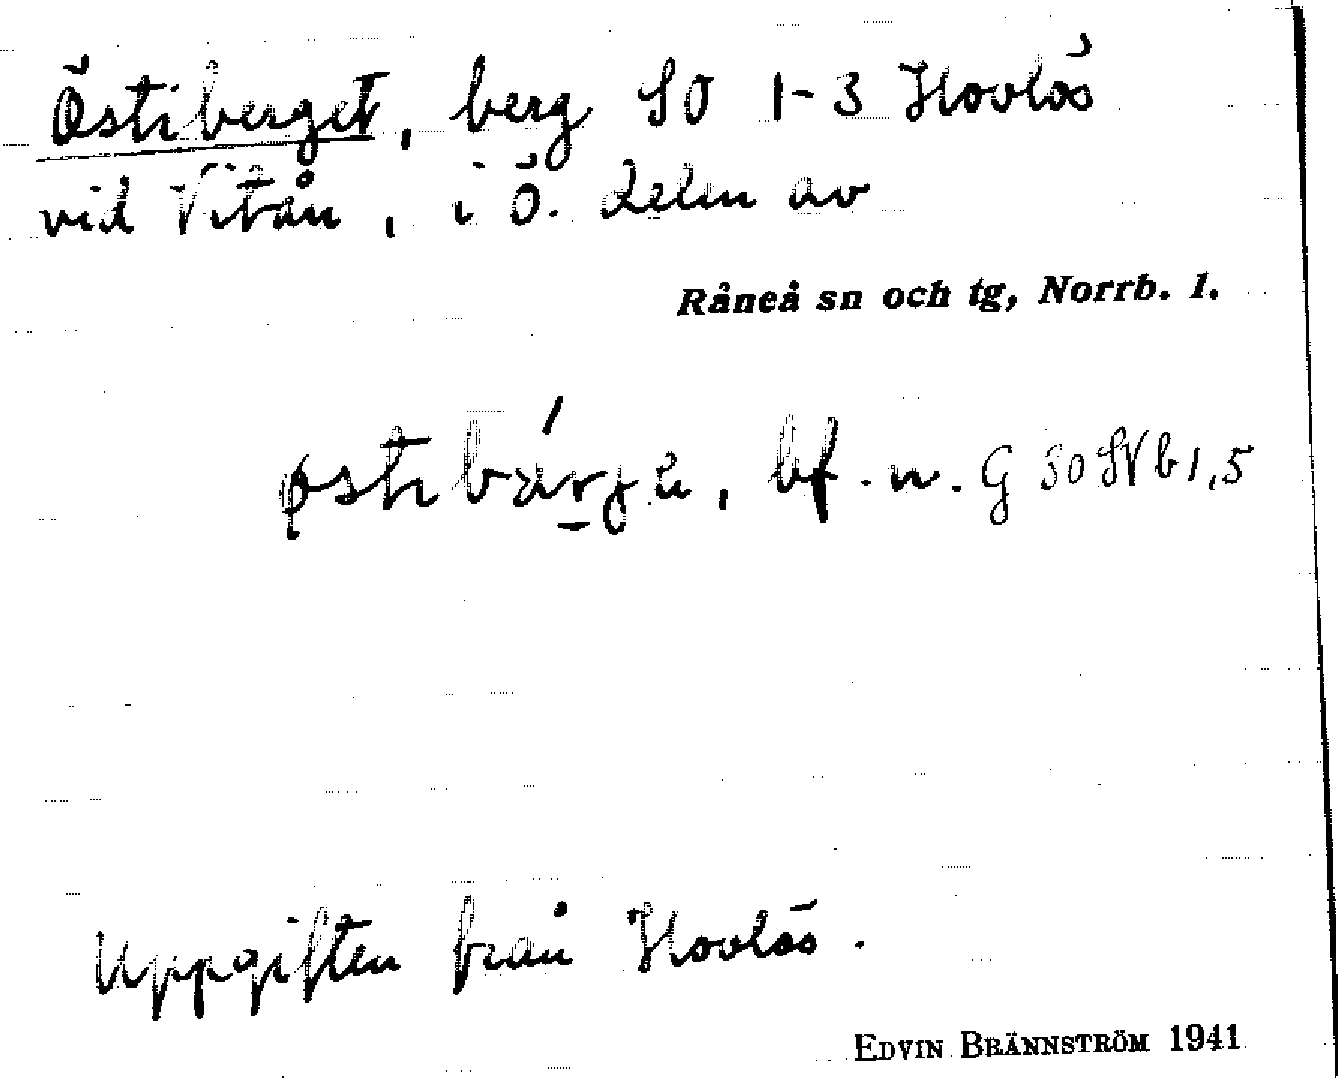 Östiberget, berg SO 1-3 Hovlös
vid Vitån, i Ö. delen av
Råneå sn och tg, Norrb. 1.
bf. n. G 30 SV b 1,5
Uppgiften från Hovlös.
EDVIN BRÄNNSTRÖM 1941